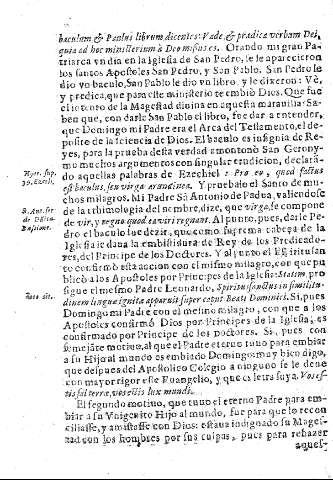 baculum & Paulus librum dicentes: Vade, & prædica verbum Dei,
quia ad hoc ministerium à Deo missus es. Orando mi gran Pa-
triarca vn dia en la Iglesia de San Pedro, le le aparecieron
los santos Apostoles San Pedro, y San Pablo. San Pedro le
dio vn baculo, San Pablo le dio vn libro, y le dizeron: Vè,
y predica, que para este ministerio te embiò Dios. Que fue
el intento de la Magestad divina en aquesta maravilla: Sa-
ben que, con darle San Pablo el libro, fue dar a entender,
que Domingo mi Padre era el Arca del Testamento, el de-
posito de la sciencia de Dios. El baculo es insignia de Re-
yes, para la prueba desta verdad amontonò San Gerony-
mo muchos argumentos con singular erudicion, declarã-
do aquellas palabras de Ezechiel : Pro eo , quod factus
Hyer. sup.
39. Ezech.
est baculus, seu virga arundinea. Y pruebalo el Santo de mu-
chos milagros. Mi Padre Sã Antonio de Padua, valiendose
de la ethimologia del nombre, dize, que virga, se compone
S. Ant. ser.
de vir, y regno quod raviri regunt. Al punto, pues, darle Pe-
dro el baculo les dezir, que como suprema cabeça de la
Iglesia le dava la embestidura de Rey de los Predicado-
res, del Principe de los Doctores. Y al punto el Espiritu san-
to confirmò esta accion con el mismo milagro, con que pu-
blicò a los Apostoles por Principes de la Iglesia: Statim, pro-
sigue el mesmo Padre Leonardo, Spiritus sanctus in similitu-
dinem linguæ ignitæ apparuit super caput Beati Dominici. Si, pues
Domingo mi Padre con el mesmo milagro, con que a los
Apostoles confirmò Dios por Principes de la Iglesia, es
confirmado por Principe de los Doctores. Si, pues con
semejãte motiuo, al que el Padre eterno tuuo para embiar
a su Hijo al mundo es embiado Domingo: muy bien digo,
que despues del Apostolico Colegio a ninguno se le deue
con mayor rigor este Euangelio, y que es letra suya. Vos es-
tis sal terræ, vos estis lux mundi.
El segundo motiuo, que tuuo el eterno Padre para em-
biar a su Vnigenito Hijo al mundo, fue para que lo recon
ciliasse, y amistasse con Dios: estaua indignado su Mages-
tad con los hombres por sus culpas, pues para rehazer
aques-